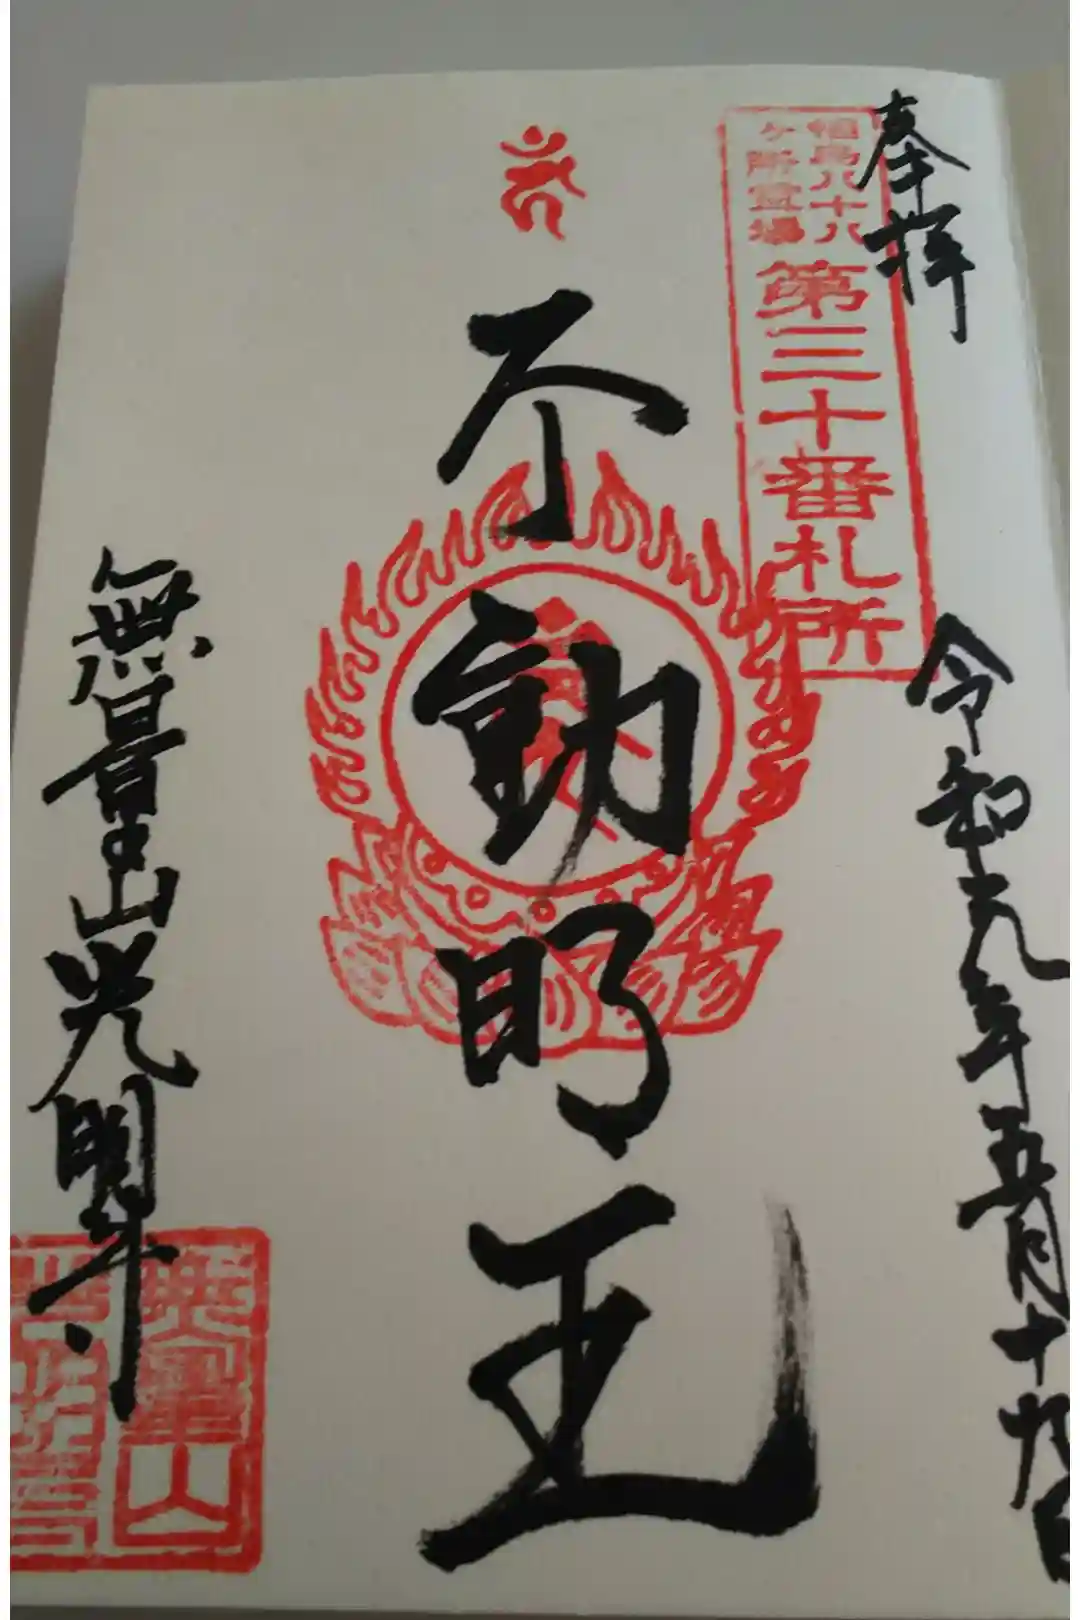 奉拝
令和元年五月十九日
八十八
ヶ所霊場
第三十番札所
不動明王
無量山光明寺
無量山